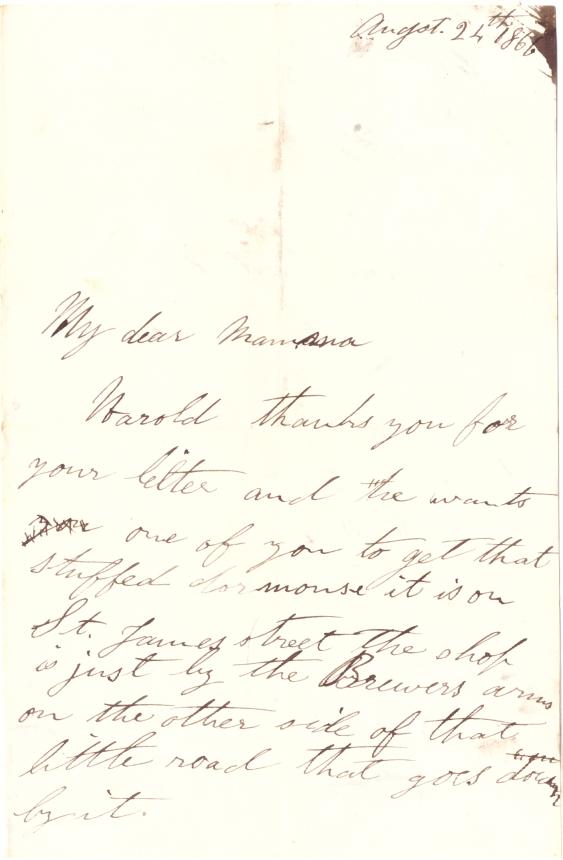 Augst. 24th 1866
My dear Mamma
Harold thanks you for
your letter and he wants
one of you to get that
stuffed dormouse it is on
St. James street The shop
is just by the Brewers arms
on the other side of that
little road that goes down
by it.